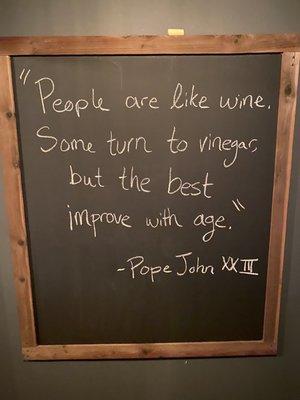 "People are like wine.
Some turn to vinegar,
but the best
improve with age."
-Pope John XXIII